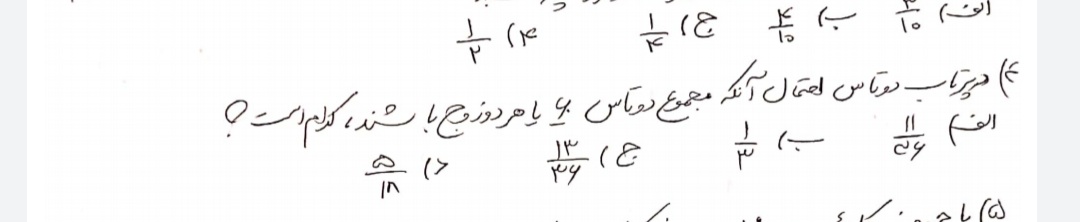 الف) ۳/۱۰ ب) ۴/۱۰ ج) ۱/۴ ۴) ۱/۲
۴) در پرتاب دو تاس احتمال آنکه مجموع دو تاس ۶ یا هر دو زوج باشند، کدام است؟
الف) ۱۱/۳۶ ب) ۱/۳ ج) ۱۳/۳۶ د) ۵/۱۸
۵) با